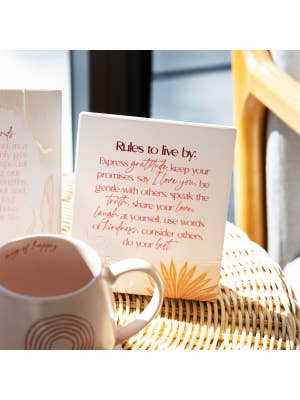 Rules to live by:
Express gratitude, keep your
promises, say I love you, be
gentle with others, speak the
truth, share your love,
laugh at yourself, use words
of kindness, consider others,
do your best.
mug of happy